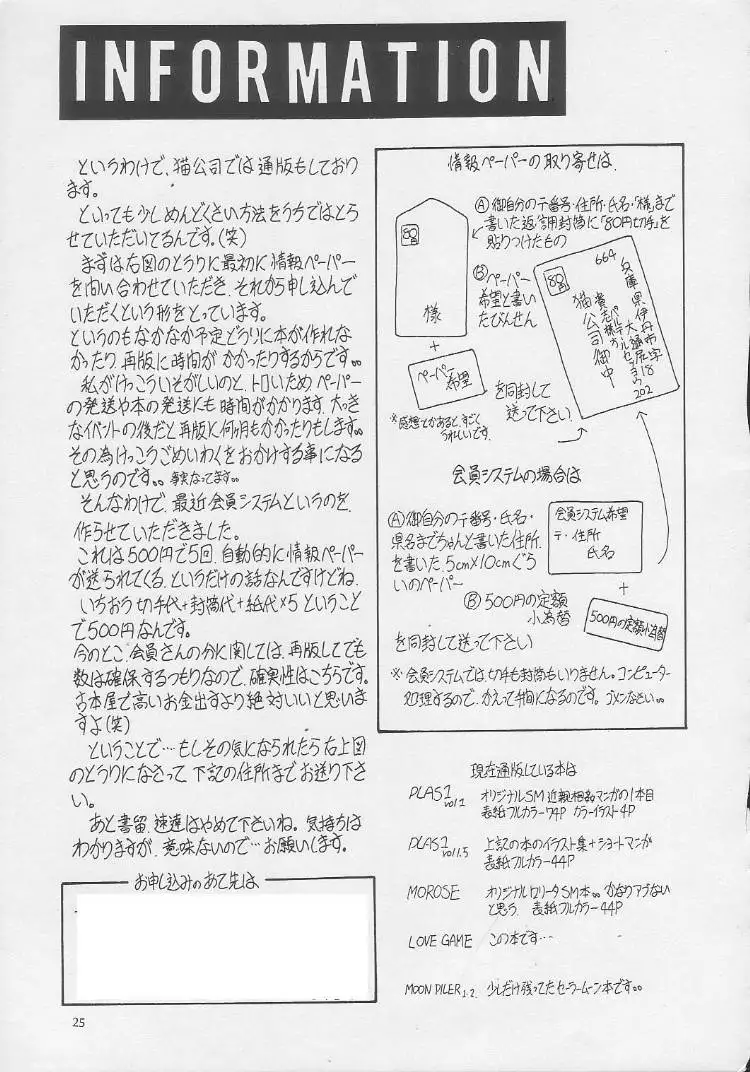 INFORMATION
というわけで、猫公司では通販もしており
ます。
といっても少しめんどくさい方法をうちではとら
せていただいてるんです。(笑)
まずは右図のとうりに最初に情報ペーパー
を問い合わせていただき、それから申し込んで
いただくという形をとっています。
というのもなかなか予定どうりに本が作れな
かったり、再版に時間がかかったりするからです。。
私がけっこういそがしいのと、トロいため、ペーパー
の発送や本の発送にも時間がかかります、大っき
なイベントの後だと再版に何ヶ月もかかったりもします。。
その為けっこうごめいわくをおかけする事になる
と思うのです。。事実なってます。。
そんなわけで、最近会員システムというのを、
作らせていただきました。
これは500円で5回、自動的に情報ペーパー
が送られてくる、というだけの話なんですけどね、
いちおう切手代+封筒代+紙代×5ということ
で500円なんです。
今のとこ、会員さんの分に関しては、再版してでも
数は確保するつもりなので、確実性はこちらです。
古本屋で高いお金出すより絶対いいと思いま
すよ(笑)
ということで…もしその気になられたら右上図
のとうりになさって下記の住所までお送り下さ
い。
あと書留、速達はやめて下さいね。気持ちは
わかりますが、意味ないので…お願いします。
お申し込みのあて先は
25
情報ペーパーの取り寄せは、
Ⓐ御自分の〒番号・住所・氏名・「様」まで
書いた返信用封筒に「80円切手」を
貼りつけたもの
80
様
+
Ⓑペーパー
希望と書い
たびんせん
ペーパー
希望
を同封して
送って下さい
※感想とかあると、すごく
うれしいです。
80
664
兵庫県伊丹市
大鹿字
18
202
貴志様方
猫公司御中
会員システムの場合は
Ⓐ御自分の〒番号・氏名・
県名までちゃんと書いた住所
を書いた、5cm×10cmぐら
いのペーパー
会員システム希望
〒・住所
氏名
+
Ⓑ500円の定額
小為替
500円の定額小為替
を同封して送って下さい
※会員システムでは、切手も封筒もいりません。コンピューター
処理するので、かえって手間になるのです。ゴメンなさい。。
現在通販している本は
PLAS1 vol.1 オリジナルSM近親相姦マンガの1本目
表紙フルカラー74P カラーイラスト4P
PLAS1 vol1.5 上記の本のイラスト集+ショートマンガ
表紙フルカラー44P
MOROSE オリジナルロリータSM本。。かなりアブない
と思う、表紙フルカラー44P
LOVE GAME この本です…
MOON PILER 1.2. 少しだけ残ってたセーラームーン本です。。